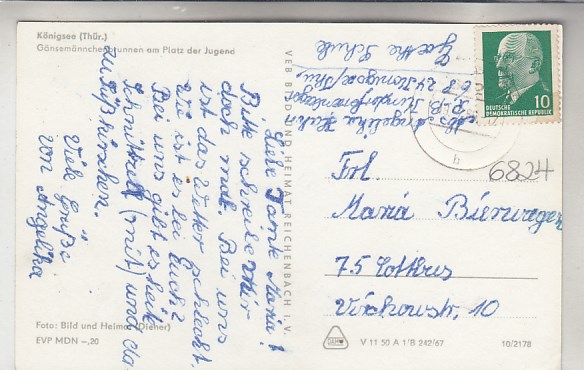 Königsee (Thür.)
Gänsemännchenbrunnen am Platz der Jugend
VEB BILD UND HEIMAT REICHENBACH i. V.
Liebe Tante Maria!
Bitte schreibe mir
doch mal. Bei uns
ist das Wetter schlecht.
Wie ist es bei Euch?
Bei uns gibt es heut
Schnitzel (mit) und da-
zu Süßkirschen.
Viele Grüße
von Angelika
Abs. Angelika Huhn
Goethe Schule
DEUTSCHE
DEMOKRATISCHE REPUBLIK
10
6824
Frl.
Maria Bierwagen
75 Cottbus
Virchowstr. 10
Foto: Bild und Heimat (Dieher)
EVP MDN –,20
V 11 50 A 1/B 242/67
10/2178